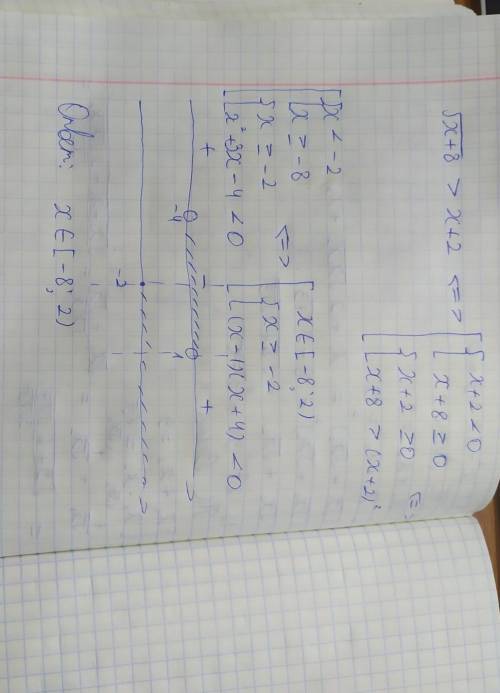 √x+8 > x+2 <=> [ { x+2 < 0
{ x+8 ≥ 0
{ x+2 ≥ 0
{ x+8 > (x+2)² <=>
[ { x < -2
{ x ≥ -8
{ x ≥ -2
{ x²+3x-4 < 0
<=> [ x ∈ [-8; 2)
{ x ≥ -2
{ (x-1)(x+4) < 0
+ -4 - 1 +
-2
Ответ: x ∈ [-8; 2)